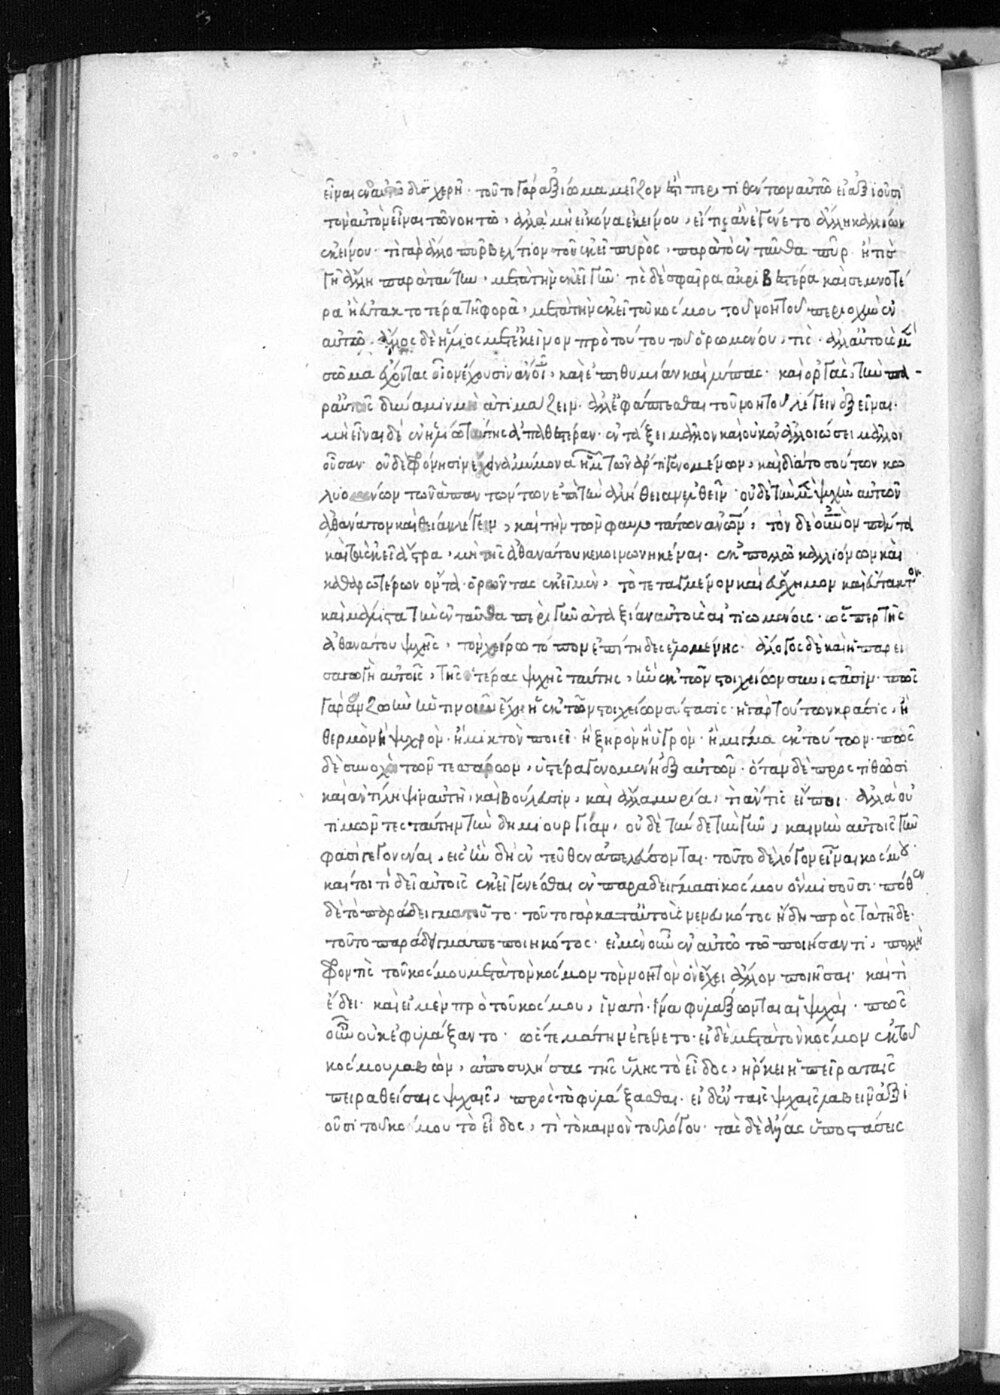 εἶναι ἐν αὐτῷ δυσχερῆ· τοῦτο γὰρ ἀξίωμα μεῖζον ἐστὶ περιτιθέντων αὐτῷ εἰ ἀξιοῦσι
τὸν αὐτὸν εἶναι τῷ νοητῷ, ἀλλὰ μὴ εἰκόνα ἐκείνου, εἴ τις ἂν ἐγένετο ἄλλη καλλίων
ἐκείνου· τί γὰρ ἄλλο πῦρ βέλτιον τοῦ ἐκεῖ πυρὸς, παρὰ τὸ ἐνταῦθα πῦρ· ἢ τίς
γῆ ἄλλη παρὰ ταύτην, μετὰ τὴν ἐκεῖ γῆν· τίς δὲ σφαῖρα ἀκριβεστέρα καὶ σεμνοτέ
ρα ἢ εὐτακτοτέρα τῇ φορᾷ, μετὰ τὴν ἐκεῖ τοῦ κόσμου τοῦ νοητοῦ περιοχὴν ἐν
αὐτῷ· ἄλλος δὲ ἥλιος μετ' ἐκεῖνον πρὸ τούτου τοῦ ὁρωμένου, τίς· ἀλλ' αὐτοὺς μὲν
σῶμα ἔχοντας οἷον ἔχουσιν ἄνοι, καὶ ἐπιθυμίαν καὶ λύπας· καὶ ὀργὰς, τὴν πα-
ρ' αὐτοῖς δύναμιν μὴ ἀτιμάζειν· ἀλλ' ἐφάπτεσθαι τοῦ νοητοῦ λέγειν ἐξεῖναι·
μὴ εἶναι δὲ ἐν ἡλίῳ ταύτης ἀπαθεστέραν· ἐν τάξει μᾶλλον καὶ οὐκ ἐν ἀλλοιώσει μᾶλλον
οὖσαν· οὐδὲ φρόνησιν ἔχειν ἀμείνονα ἡμῶν τῶν ἄρτι γενομένων, καὶ διὰ τοσούτων κω
λυομένων τῶν ἀπατώντων ἐπὶ τὴν ἀλήθειαν ἐλθεῖν· οὐδὲ τὴν μὲν ψυχὴν αὐτῶν
ἀθάνατον καὶ θείαν λέγειν, καὶ τὴν τῶν φαυλοτάτων ἀνων, τὸν δὲ οὐνον πάντα
καὶ τὰ ἐκεῖ ἄστρα, μὴ τῆς ἀθανάτου κεκοινωνηκέναι· ἐκ πολλῷ καλλιόνων καὶ
καθαρωτέρων ὄντα· ὁρῶντας ἐκεῖ μὲν, τὸ τεταγμένον καὶ εὔσχημον καὶ εὔτακτον
καὶ μάλιστα τὴν ἐνταῦθα περὶ γῆν ἀταξίαν αὐτοὺς αἰτιωμένοις· ὥσπερ τῆς
ἀθανάτου ψυχῆς, τὸν χείρω τόπον ἐπίτηδες ἑλομένης· ἄλογος δὲ καὶ ἡ παρει
σαγωγὴ αὐτοῖς, τῆς ἑτέρας ψυχῆς ταύτης, ἣν ἐκ τῶν στοιχείων συνιστᾶσιν· πῶς
γὰρ ἂν ζωὴν ἡντινοῦν ἔχῃ ἡ ἐκ τῶν στοιχείων σύστασις· ἡ γὰρ τούτων κρᾶσις, ἢ
θερμὸν ἢ ψυχρὸν· ἢ μικτὸν ποιεῖ· ἢ ξηρὸν ἢ ὑγρὸν· ἢ μίγμα ἐκ τούτων· πῶς
δὲ συνοχὴ τῶν τεσσάρων, ὑστέρα γενομένη ἐξ αὐτῶν· ὅταν δὲ προστιθῶσι
καὶ ἀντίληψιν αὐτῇ, καὶ βούλευσιν, καὶ ἄλλα μυρία, τί ἄν τις εἴποι· ἀλλὰ οὐ
τιμῶντες ταύτην τὴν δημιουργίαν, οὐδὲ τήνδε τὴν γῆν, καινὴν αὐτοῖς γῆν
φασὶ γεγονέναι, εἰς ἣν δὴ ἐντεῦθεν ἀπελεύσονται· τοῦτο δὲ λόγον εἶναι κόσμου·
καίτοι τί δεῖ αὐτοῖς ἐκεῖ γενέσθαι ἐν παραδείγματι κόσμου ὃν μισοῦσι· πόθεν
δὲ τὸ παράδειγμα τοῦτο· τοῦτο γὰρ κατ' αὐτοὺς νενευκότος ἤδη πρὸς τὰ τῇδε·
τοῦτο παράδειγμα πεποιηκότος· εἰ μὲν οὖν ἐν αὐτῷ τῷ ποιήσαντι, πολλὴ
φροντὶς τοῦ κόσμου μετὰ τὸν κόσμον τὸν νοητὸν ὃν ἔχει ἄλλον ποιῆσαι· καὶ τί
ἔδει· καὶ εἰ μὲν πρὸ τοῦ κόσμου, ἵνα τί· ἵνα φυλάξωνται αἱ ψυχαί· πῶς
οὖν οὐκ ἐφυλάξαντο· ὥστε μάτην ἐγένετο· εἰ δὲ μετὰ τὸν κόσμον ἐκ τοῦ
κόσμου λαβὼν, ἀποσυλήσας τῆς ὕλης τὸ εἶδος, ἤρκει ἡ πεῖρα ταῖς
πειραθείσαις ψυχαῖς, πρὸς τὸ φυλάξασθαι· εἰ δ' ἐν ταῖς ψυχαῖς λαβεῖν ἀξι
οῦσι τοῦ κόσμου τὸ εἶδος, τί τὸ καινὸν τοῦ λόγου· τὰς δὲ ἄλλας ὑποστάσεις